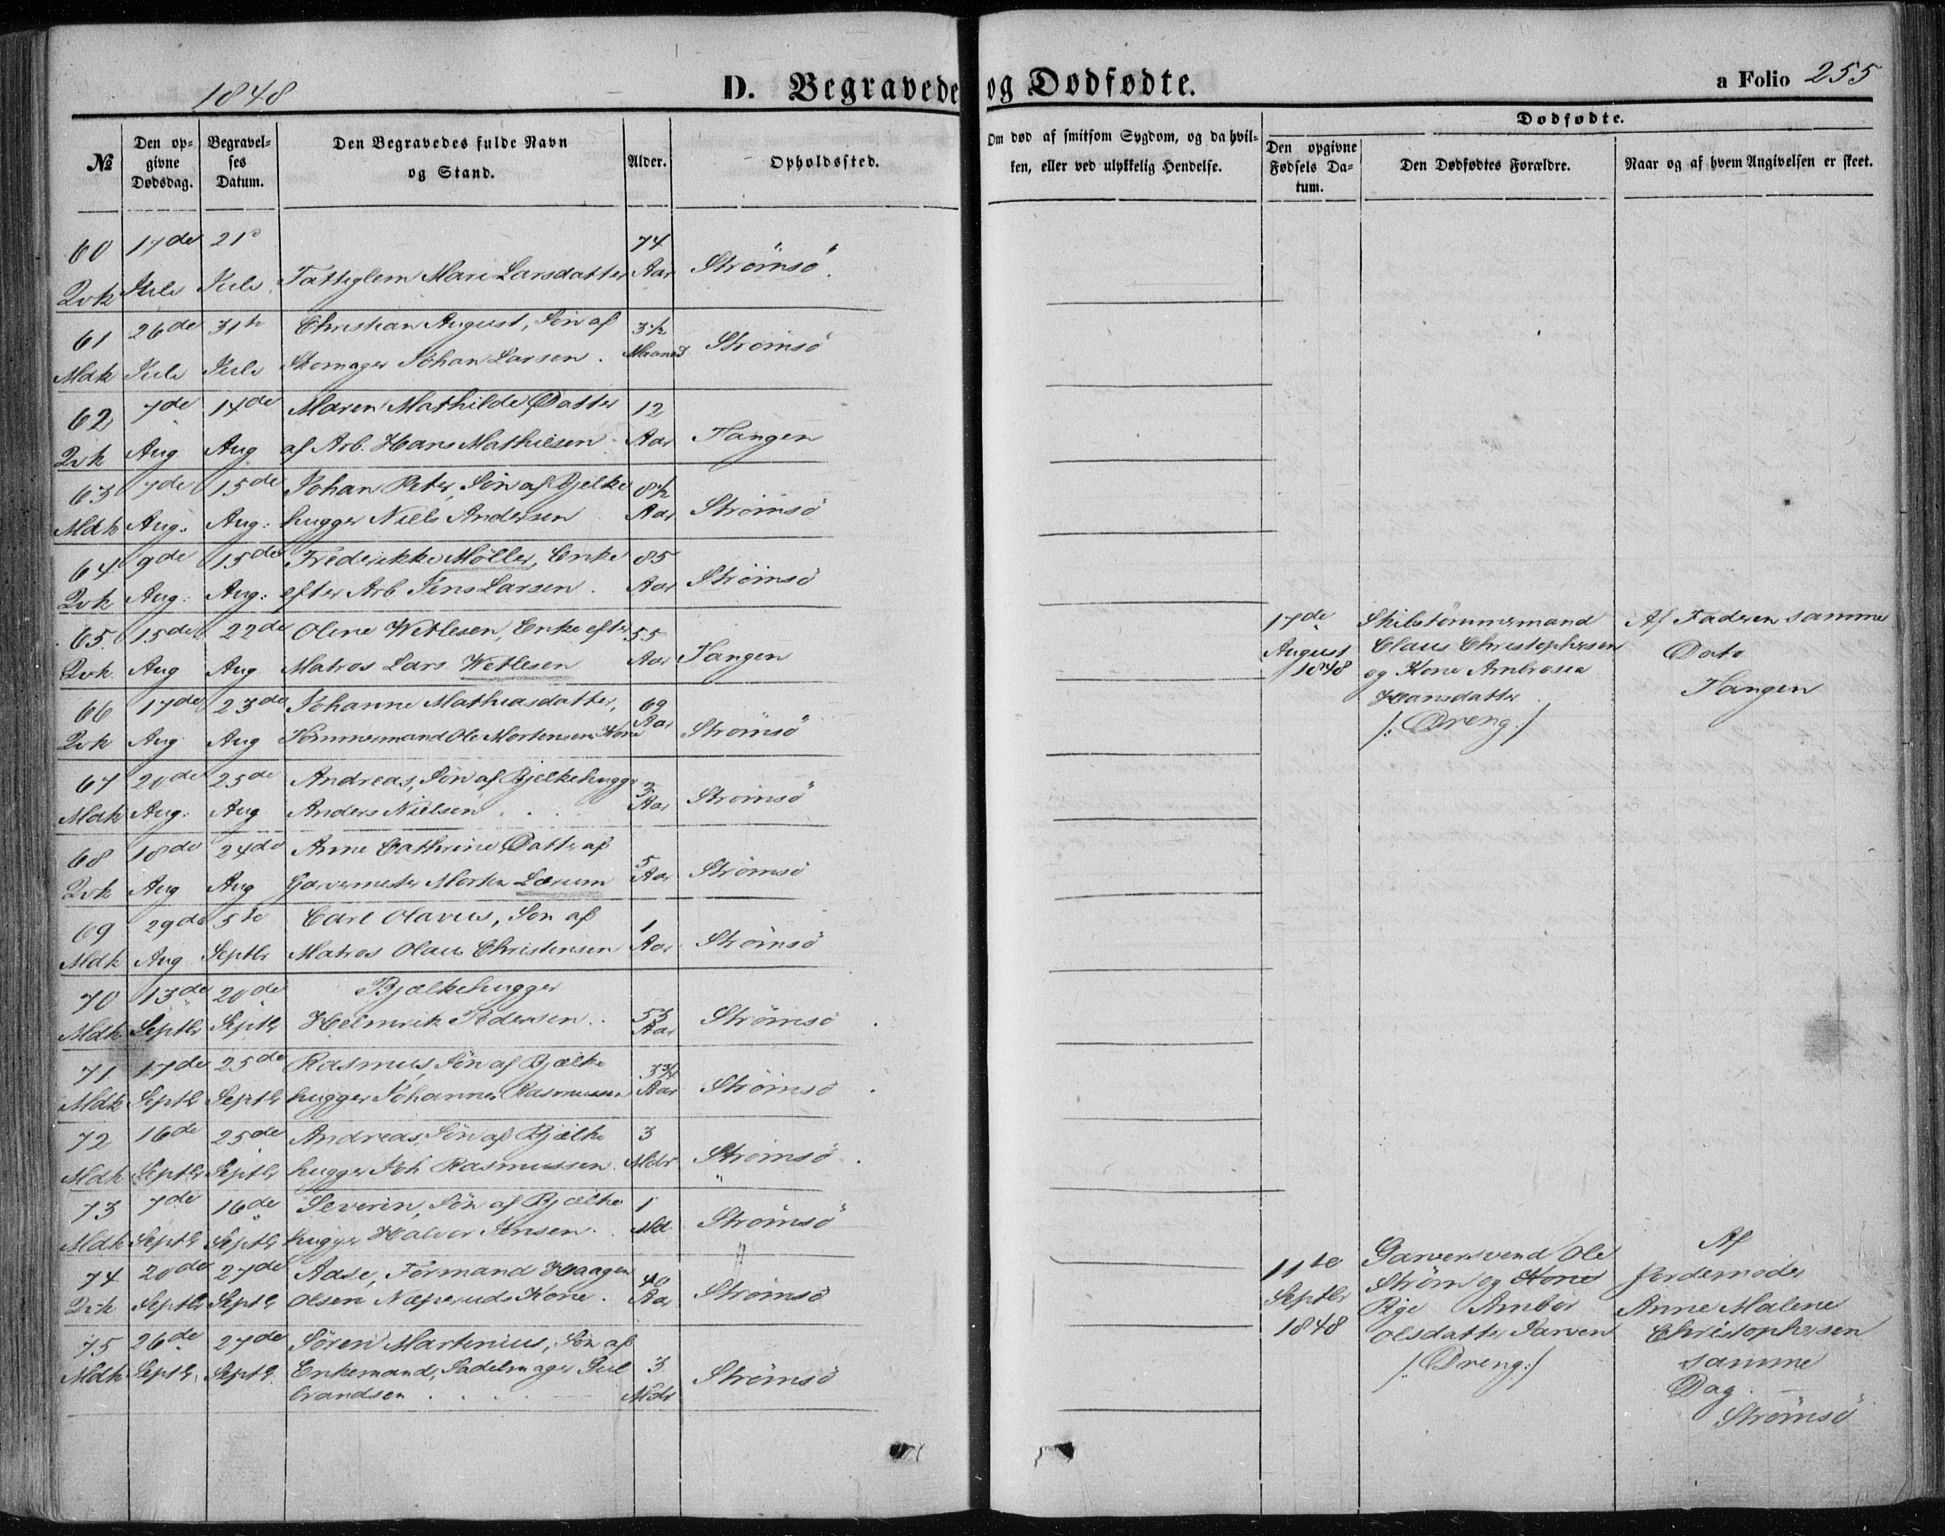 1848
D. Begravede og Dødfødte.
a Folio 255
№
Den opgivne Dødsdag.
Begravelses Datum.
Den Begravedes fulde Navn og Stand.
Alder.
Opholdssted.
Om død af smitsom Sygdom, og da hvilken, eller ved ulykkelig Hendelse.
Dødfødte.
Den opgivne Fødsels Datum.
Den Dødfødtes Forældre.
Naar og af hvem Angivelsen er skeet.
60 17de 21 74
Qvk Juli Juli Fatteglem Mari Larsdatter Aar Strømsö.
61 26de 31te Christian August, Sön af 3½
Mdk Juli Juli Skomager Johan Larsen. Maaned Strömsö
62 7de 14de Maren Mathilde Datter 12
Qvk Aug Aug af Arb. Hans Mathiesen Aar Tangen
63 7de 15de Johan Peter, Sön af Bjelke 8½
Mdk Aug. Aug: hugger Niels Andersen Aar Strömsö
64 9de 15de Frederikke Möller, Enke 85
Qvk Aug: Aug: efter Arb Jens Larsen. Aar Strömsö
65. 15de 22de Olene Wetlesen, Enke efter 55
Qvk Aug Aug Matros Lars Wetlesen Aar Tangen
66 17de 23de Johanne Mathiasdatter, 69
Qvk Aug Aug Tömmermand Ole Mortensen Kone Aar Strömsö
67 20de 25de Andreas, Sön af Bjelkehugger 3
Mdk Aug. Aug Anders Nielsen Aar Strömsö
68 18de 24de Anne Cathrine, Datter af 5
Qvk Aug Aug Garvermester Morten Lærum Aar Strømsö
69 29de 5te Carl Olavus, Sön af 1
Mdk Aug Septbr Matros Olaus Christensen Aar Strömsö
70 13de 20de Bjælkehugger
Mdk Septbr Septbr Helmrik Pedersen. 53 Aar Strömsö
71 17de 25de Rasmus, Sön af Bjælke 3¾
Mdk Septbr Septbr hugger Johannes Rasmussen Aar Strömsö
72 16de 25de Andreas, Sön af Bjælke 3
Mdk Septbr Septbr hugger Joh Rasmussen. Mdr Strömsö.
73 7de 16de Severin, Sön af Bjælke 1
Mdk Septbr Septbr hugger Halvor Jensen. Md. Strömsö
74 20de 27de Aase, Formand Haagen 40
Qvk Septbr Septbr Olsen Næperuds Kone. Aar Strömsö
75 26de 27de Sören Martinius, Sön af
Mdk Septbr. Septb. Enkemand, Sadelmager Gul 3 Strömsö
brandsen Mdr
17de Skibstömmermand Af Faderen samme
August Claus Christophersen Dato
1848 og Kone Ambrosia Tangen
Hansdatter
/: Dreng :/
11te Garversvend Ole Af
Septbr Ström og Kone Jordemoder
1848 Bye Ambor Anne Malene
Olsdatter Christophersen
/: Dreng :/ samme
Dag.
Strömsö